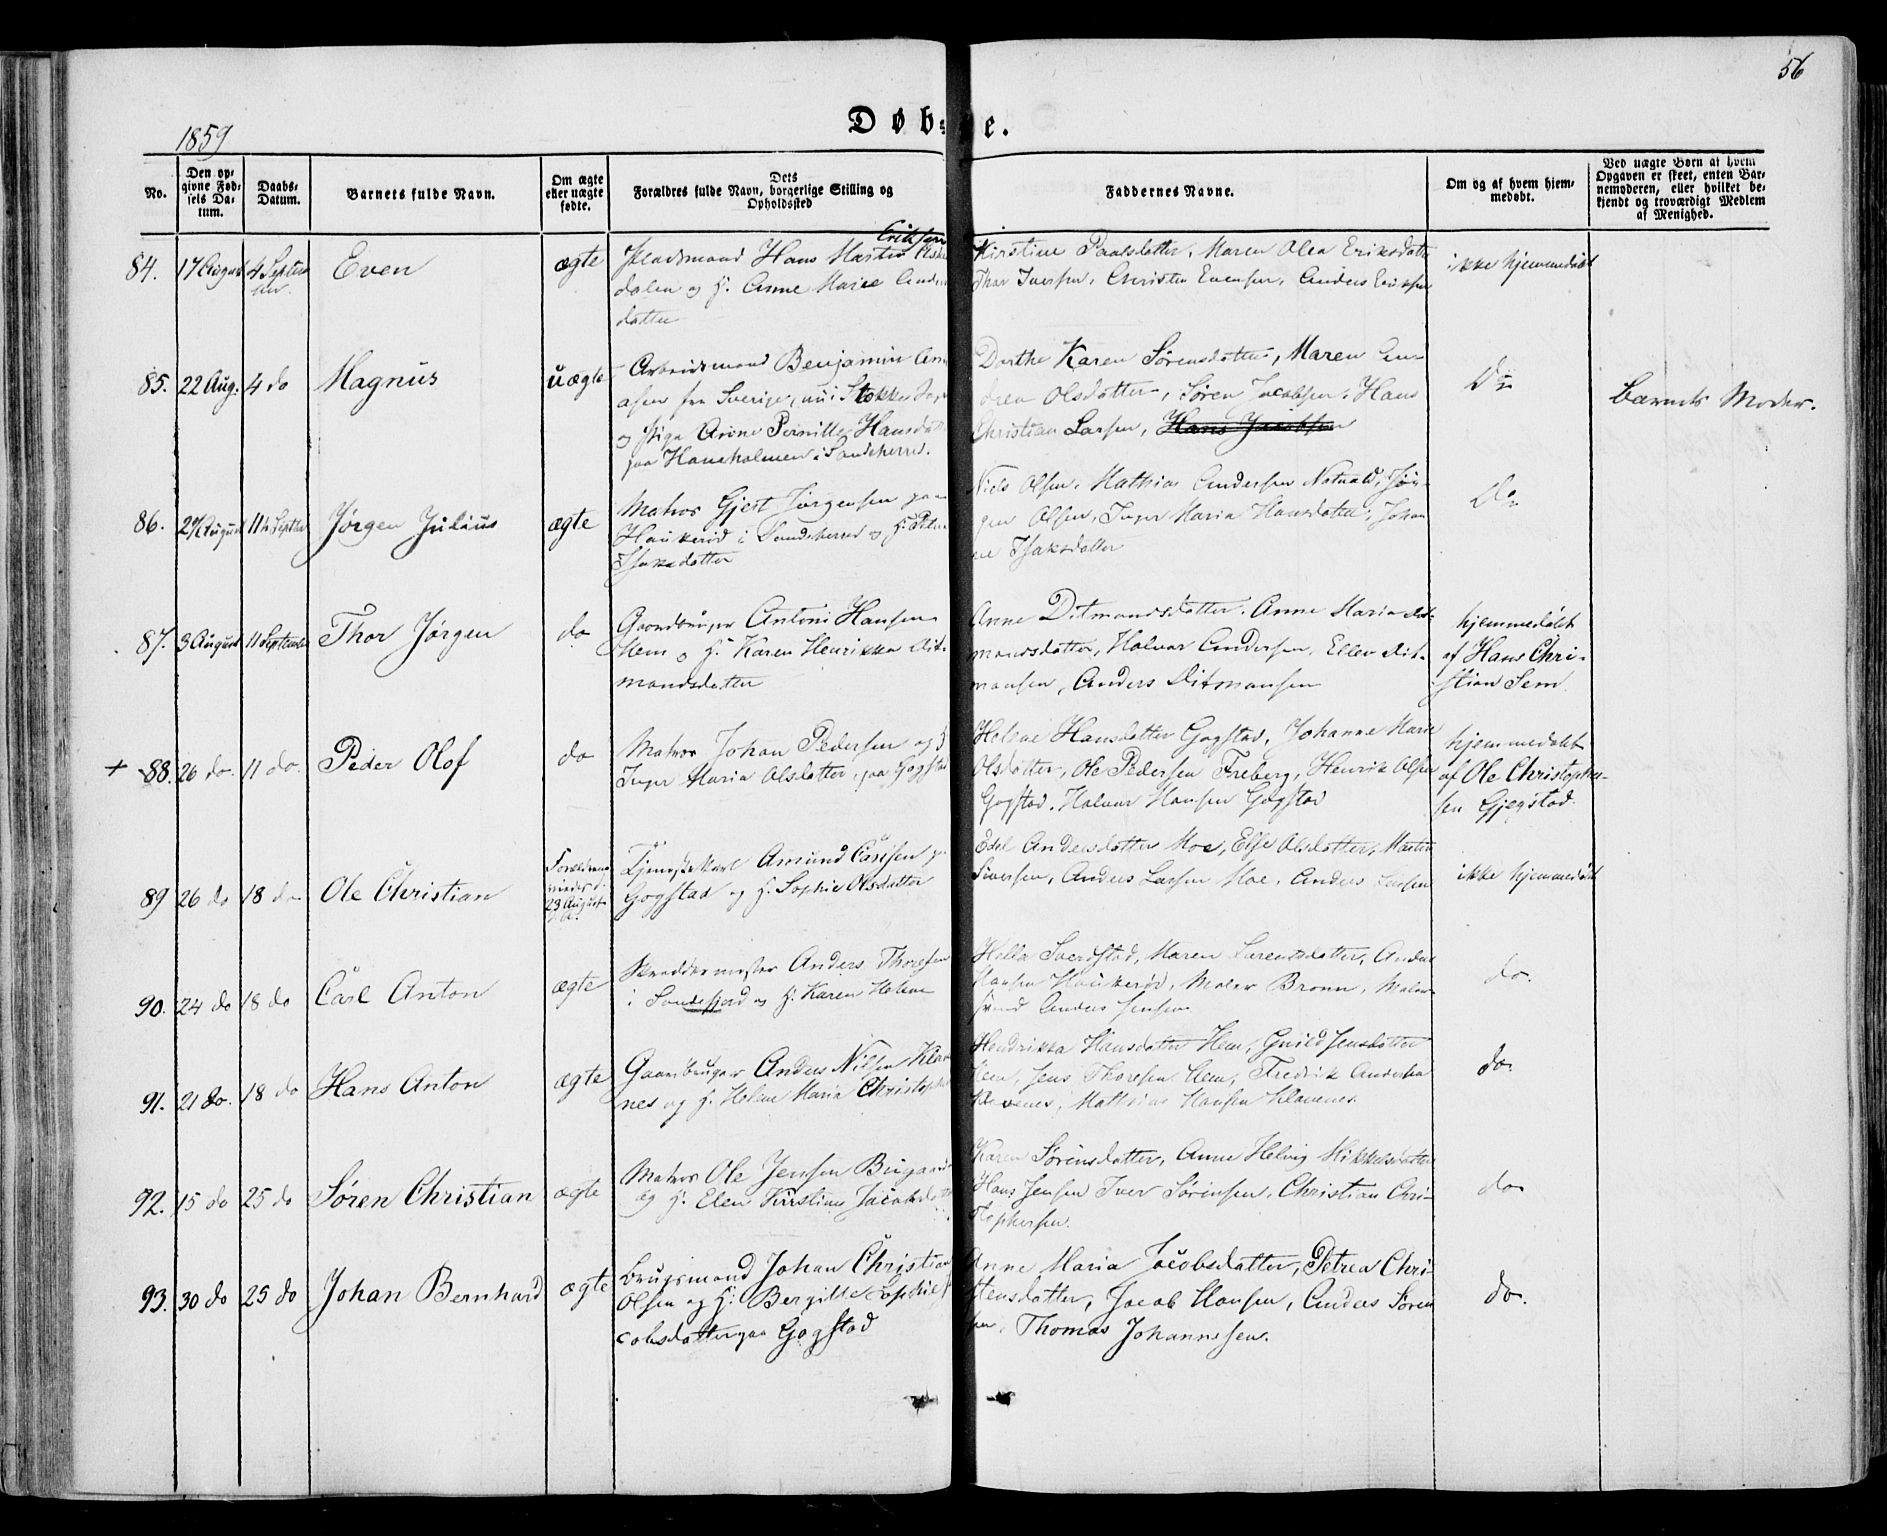 56
1859
Døb=
e.
No.
Den op=
givne Fød=
sels Da=
tum.
Daabs=
Datum.
Barnets fulde Navn.
Om ægte
eller uægte
fødte.
Dets
Forældres fulde Navn, borgerlige Stilling og
Opholdssted
Faddernes Navne.
Om og af hvem hjem=
medøbt.
Ved uægte Børn af hvem
Opgaven er skeet, enten Bar=
nemoderen, eller hvilket be=
kjendt og troværdigt Medlem
af Menighed.
84. 17 August 4 Septem
ber.
Even
ægte
Pladsmand Hans Martin
Eriksen
dalen og H. Anne Marie
datter
Kirstine Paalsdatter, Maren Olea Eriksdatter
Thor Iversen, Christen Evensen, Anders Eriksen
ikke hjemmedøbt
85. 22 Aug. 4 do
Magnus
uægte
Arbeidsmand Benjamin An
asen fra Sverige, nu i Stokke
og Pige Anne Pernille Hansdat
paa Haneholmen i Sandeherred.
Dorthe Karen Sørensdatter, Maren An-
drea Olsdatter, Søren Jacobsen, Hans
Christian Larsen, Hans Jacobsen
Do
Barnets Moder.
86. 27 August 11te Septbr
Jørgen Julius
ægte
Matros Gjert Jørgensen paa
Haukerød i Sandeherred og H.
Isaksdatter
Niels Olsen, Mathias Andersen Natvald, Jør-
gen Olsen, Inger Maria Hansdatter, Johan
ne Isaksdatter
Do
87. 3 August 11 September
Thor Jørgen
do
Gaardbruger Anton Hansen
Hem og H. Karen Henrikka Dit-
mandsdatter
Anne Ditmandsdatter, Anne Maria Dit-
mandsdatter, Halvor Andersen, Ellev Dit-
mansen, Anders Ditmansen
hjemmedøbt
af Hans Chri-
stian Sem.
+ 88. 26 do. 11 do.
Peder Olof
do
Matros Johan Pedersen og H
Inger Maria Olsdatter, paa Gogstad
Helene Hansdatter Gogstad, Johanne Marie
Olsdatter, Ole Pedersen Freberg, Henrik Olsen
Gogstad, Halvor Hansen Gogstad
hjemmedøbt
af Ole Christophe-
sen Gjegstad.
89 26 do 18 do
Ole Christian
Forældrene
viede d.
23 August
d. A.
Tjenestekarl Amund Carlsen p
Gogstad og H. Sophie Olsdatter
Edel Andersdatter Moe, Else Olsdatter, Martin
Siversen, Anders Larsen Moe, Anders Larsen
ikke hjemmedøbt
90. 24 do 18 do
Carl Anton
ægte
Skreddermester Anders Thoresen
i Sandefjord og H. Karen Helene
Hella Sverdstad, Maren Lorentsdatter, Anders
Hansen Haukerød, Maler Bronn, Maler
svend Anders Jensen
do.
91. 21 do. 18 do
Hans Anton
ægte
Gaardbruger Anders Nilsen Klave
nes og H. Helene Maria Christoph
Hendrikka Hansdatter Hem, Gunild Jensdatter
Hem, Jens Thoresen Hem, Fredrik Andersen
Klavenes, Mathias Hansen Klavenes.
do.
92. 15 do 25 do
Søren Christian
ægte
Matros Ole Jensen Bugaard
og H. Elen Kirstine Jacobsdatter
Karen Sørensdatter, Anne Helvig Mikkelsdatter
Hans Jensen Iver Sørensen, Christian Chri-
stophersen.
do
93. 30 do 25 do
Johan Bernhard
ægte
Brugsmand Johan Christian
Olsen og H. Bergitte Sophie J
cobsdatter paa Gogstad
Anne Maria Jacobsdatter, Petrea Chri-
stensdatter, Jacob Hansen, Anders Søren
sen, Thomas Johannesen.
do.